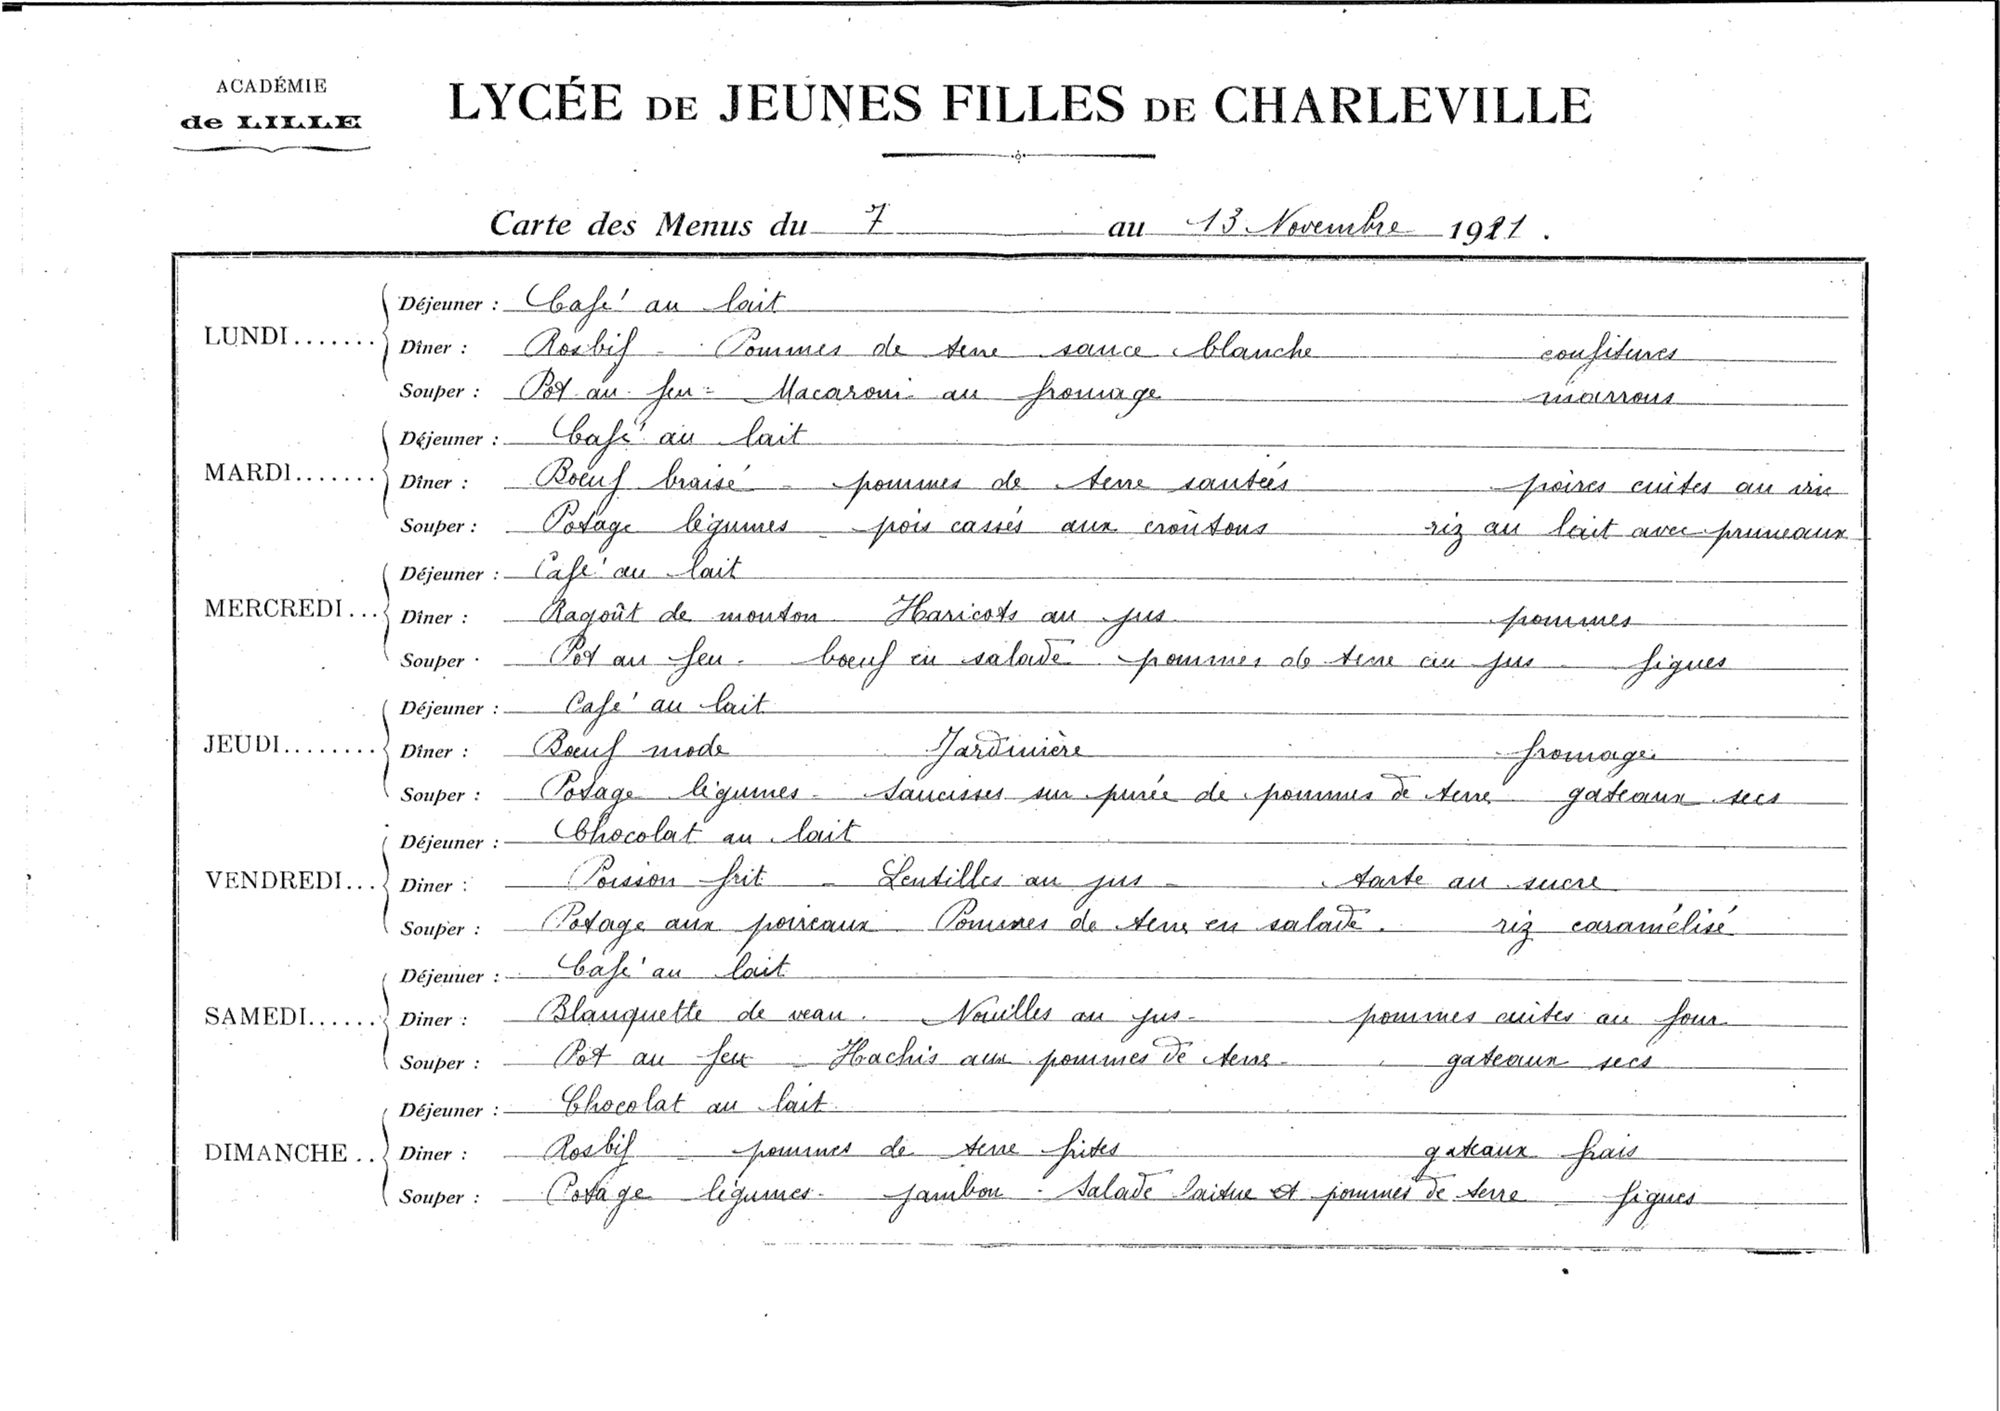 ACADÉMIE
de LILLE
LYCÉE DE JEUNES FILLES DE CHARLEVILLE
Carte des Menus du 7 au 13 Novembre 1921.
LUNDI.......
Déjeuner : Café au lait
Dîner : Rosbif - Pommes de terre sauce blanche confitures
Souper : Pot au feu - Macaroni au fromage marrons
MARDI.......
Déjeuner : Café au lait
Dîner : Boeuf braisé - pommes de terre sautées poires cuites au vin
Souper : Potage légumes - pois cassés aux croûtons riz au lait avec pruneaux
MERCREDI...
Déjeuner : Café au lait
Dîner : Ragoût de mouton Haricots au jus pommes
Souper : Pot au feu - boeuf en salade - pommes de terre au jus - figues
JEUDI........
Déjeuner : Café au lait
Dîner : Boeuf mode Jardinière fromage
Souper : Potage légumes - Saucisses sur purée de pommes de terre gateaux secs
VENDREDI...
Déjeuner : Chocolat au lait
Diner : Poisson frit - Lentilles au jus - tarte au sucre
Souper : Potage aux poireaux Pommes de terre en salade. riz caramélisé
SAMEDI......
Déjeuner : Café au lait
Diner : Blanquette de veau. Nouilles au jus - pommes cuites au four
Souper : Pot au feu - Hachis aux pommes de terre - gateaux secs
DIMANCHE ..
Déjeuner : Chocolat au lait
Diner : Rosbif pommes de terre frites gateaux frais
Souper : Potage légumes - jambon - Salade laitue et pommes de terre figues